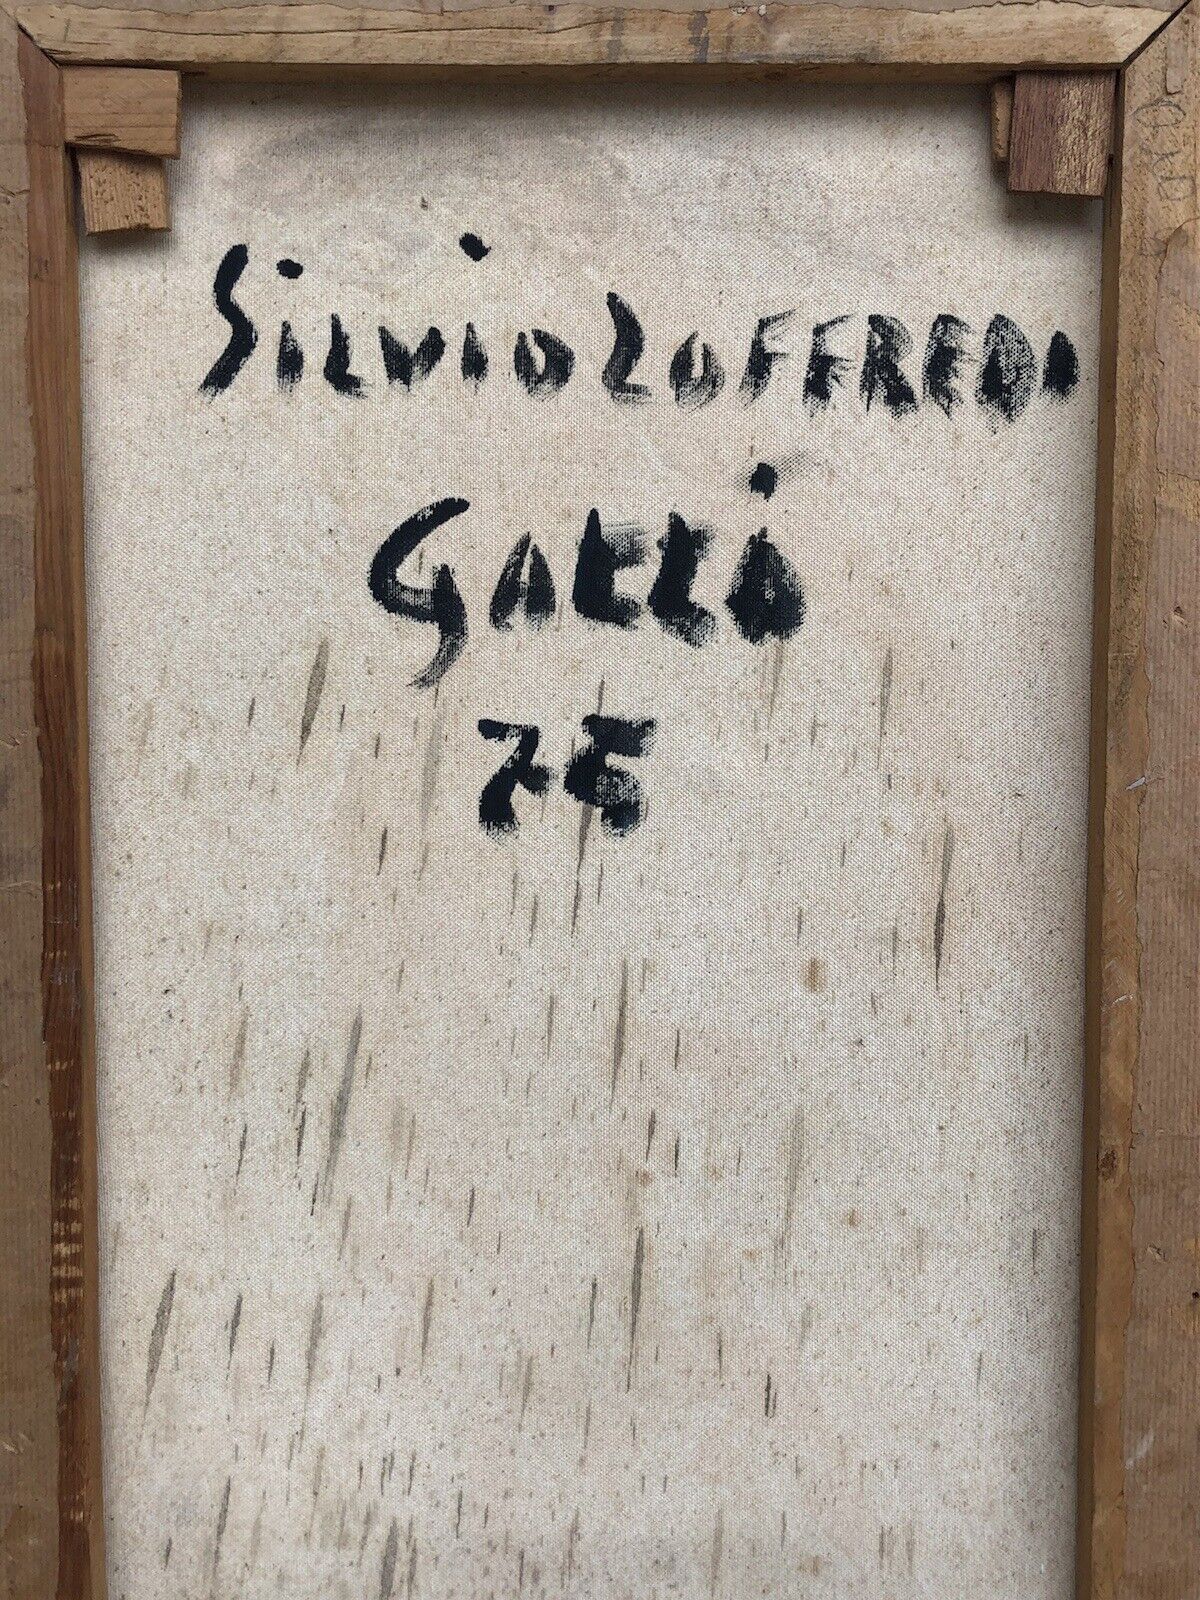 Silvio LOFFREDO
GALLO
75